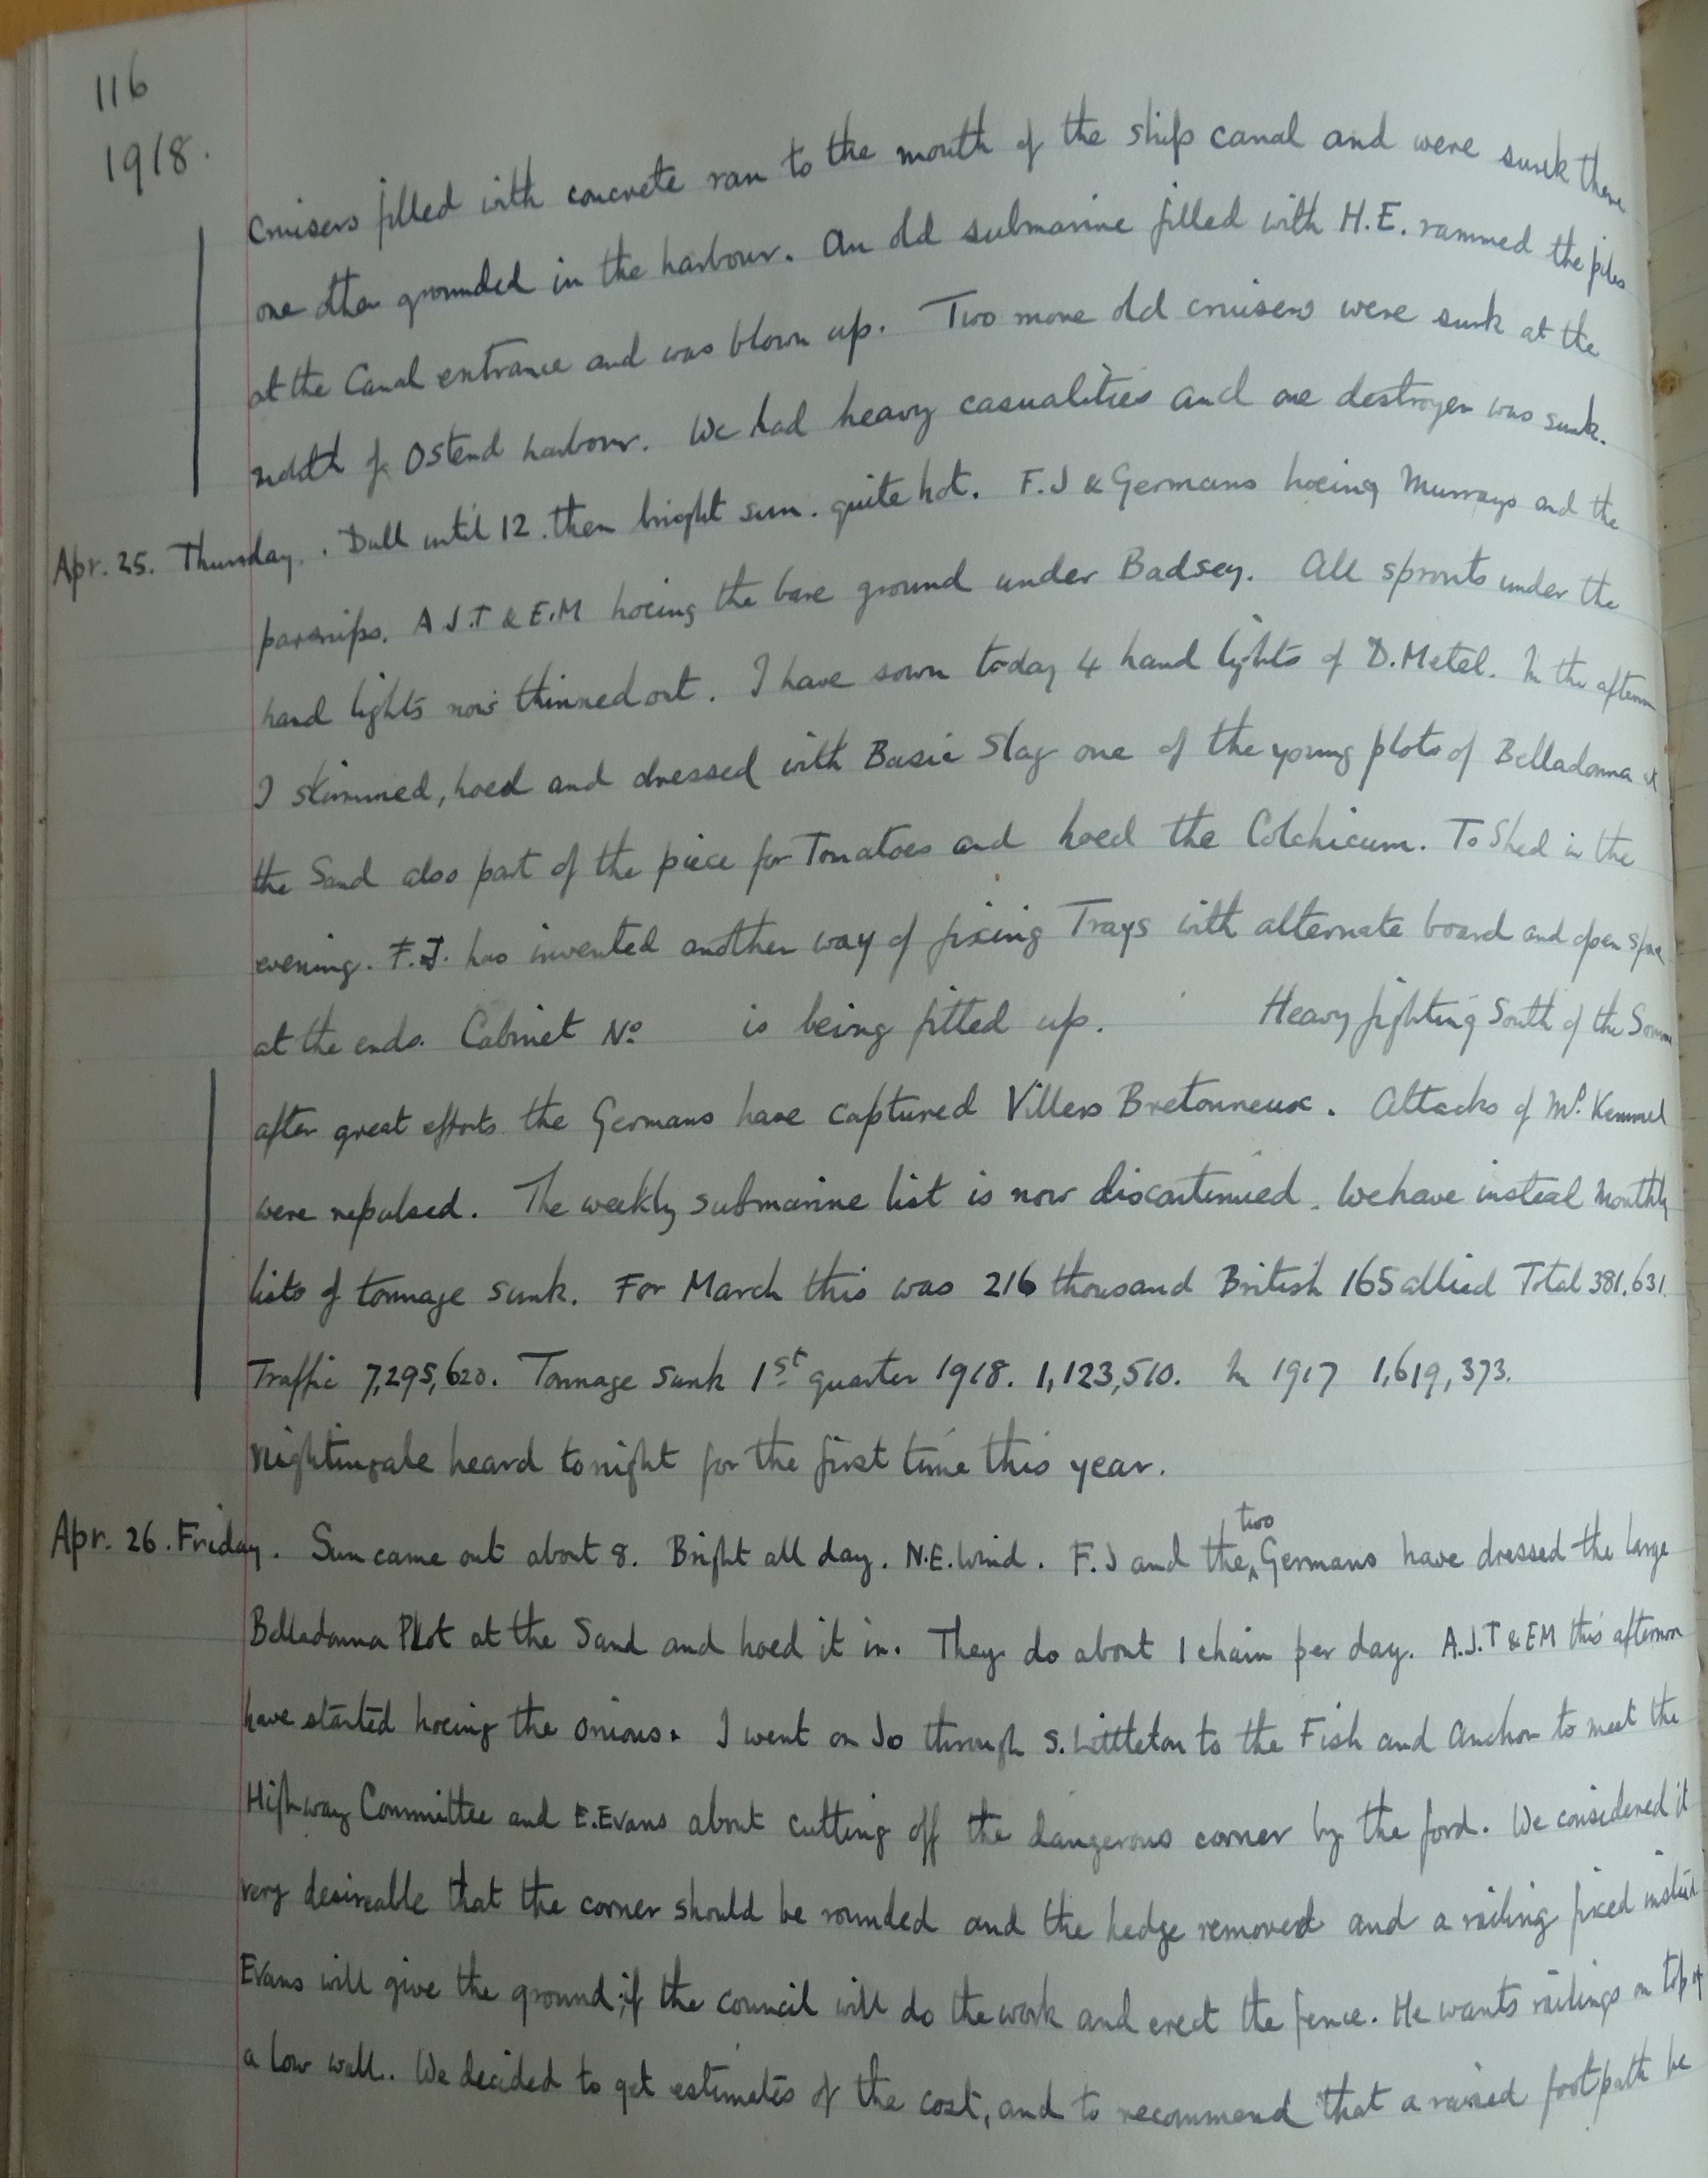 116
1918.
Cruisers filled with concrete ran to the mouth of the ship canal and were sunk there
one other grounded in the harbour. An old submarine filled with H.E. rammed the piles
at the Canal entrance and was blown up. Two more old cruisers were sunk at the
mouth of Ostend harbour. We had heavy casualities and one destroyer was sunk.
Apr. 25. Thursday. Dull until 12. then bright sun. quite hot. F.J & Germans hoeing Murrays and the
parsnips. A.J.T & E.M hoeing the bare ground under Badsey. All sprouts under the
hand lights now thinned out. I have sown today 4 hand lights of D. Metel. In the afternoon
I skimmed, hoed and dressed with Basic Slag one of the young plots of Belladonna at
the Sand also part of the piece for Tomatoes and hoed the Colchicum. To Shed in the
evening. F.J. has invented another way of fixing Trays with alternate board and open space
at the ends. Cabinet No is being fitted up. Heavy fighting South of the Somme
after great efforts the Germans have captured Villers Bretonneux. Attacks of Mt. Kemmel
were repulsed. The weekly submarine list is now discontinued. We have instead Monthly
lists of tonnage sunk. For March this was 216 thousand British 165 allied Total 381,631.
Traffic 7,295,620. Tonnage sunk 1st quarter 1918. 1,123,510. In 1917 1,619,373.
Nightingale heard tonight for the first time this year.
Apr. 26. Friday. Sun came out about 8. Bright all day. N.E. Wind. F.J and the two Germans have dressed the large
Belladonna Plot at the Sand and hoed it in. They do about 1 chain per day. A.J.T & EM this afternoon
have started hoeing the onions. I went on Jo through S. Littleton to the Fish and Anchor to meet the
Highway Committee and E. Evans about cutting off the dangerous corner by the ford. We considered it
very desireable that the corner should be rounded and the hedge removed and a railing fixed instead
Evans will give the ground if the council will do the work and erect the fence. He wants railings on top of
a low wall. We decided to get estimates of the cost, and to recommend that a raised footpath be